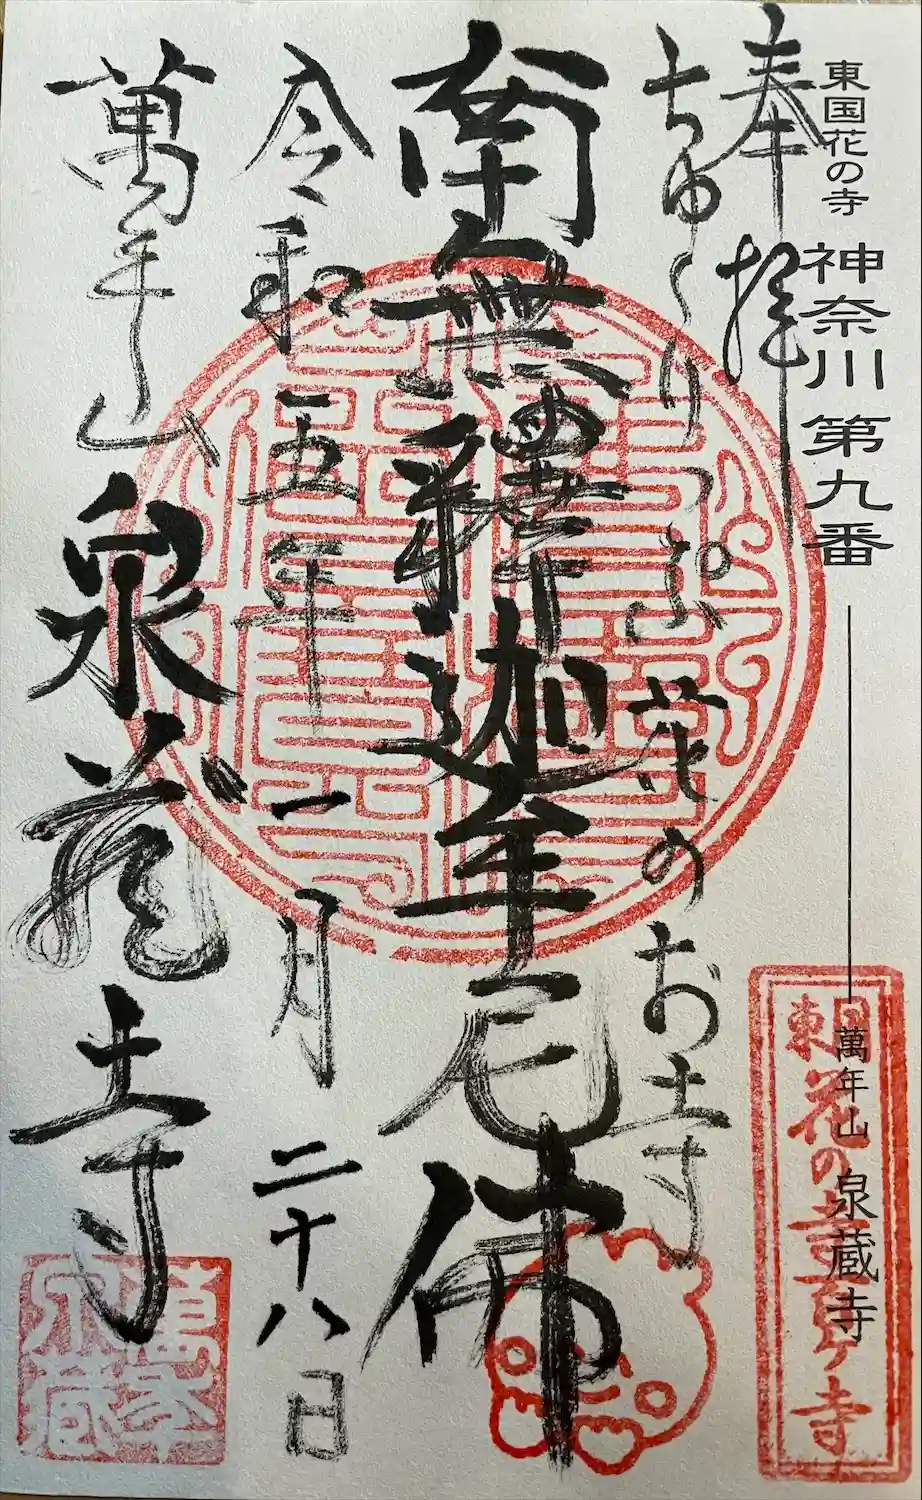 東国花の寺 神奈川第九番 萬年山 泉蔵寺
東国花の寺百ヶ寺
奉拝
ちゅうりっぷ花のお寺
南無釋迦牟尼佛
令和五年一月二十八日
萬年山 泉蔵寺
萬年
泉蔵